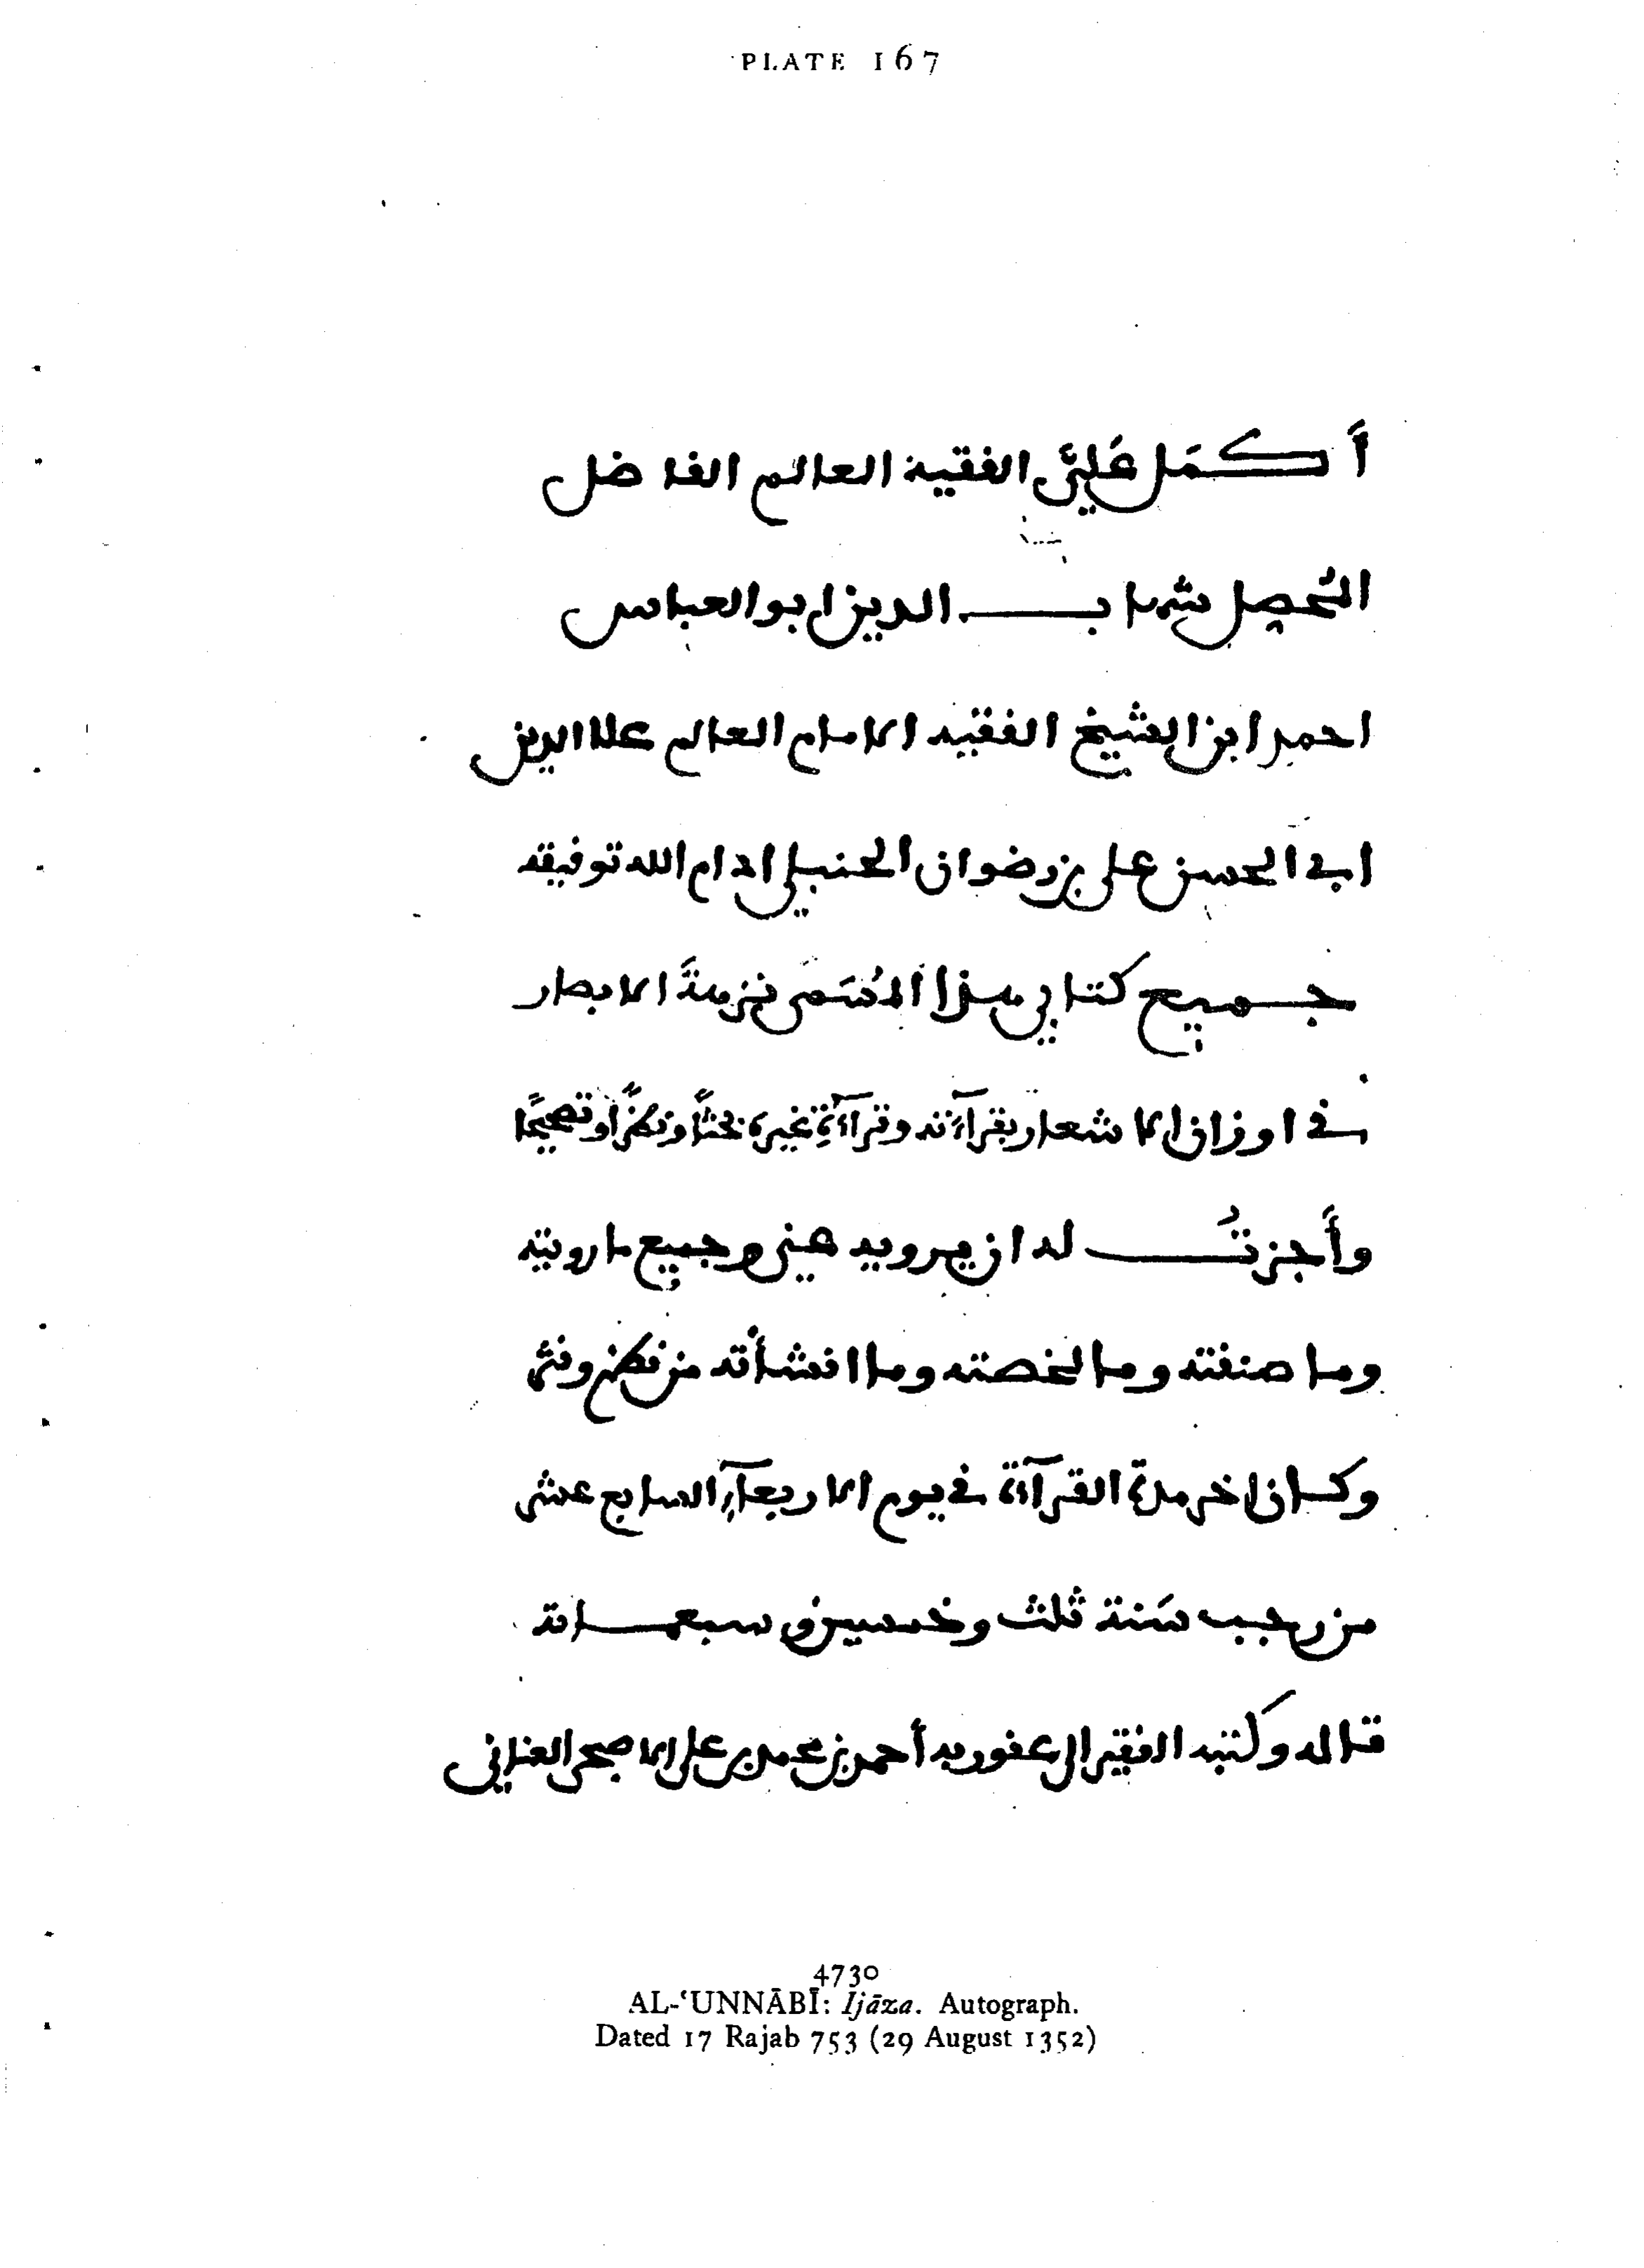 PLATE 167
أكمَل عَليَّ الفقيه العالم الفاضل
المُحصل شهاب الدين ابو العباس
احمد ابن الشيخ الفقيه الامام العالم علا الدين
ابي الحسن علي بن رضوان الحنبلي ادام الله توفيقه
جميع كتابي هذا المُسَمى نزهةَ الابصار
في اوزان الاشعار بقرآءته وقرآءةِ غيره بحثًا ونظرًا وتصحيحًا
وأَجزتُ له ان يرويه عني وجميع ما رويته
وما صنفته وما لخصته وما انشأته من نظم ونثر
وكان اخر مدة القرآءة في يوم الاربعآءِ السابع عشر
من رجب سَنة ثلث وخمسين وسبعماىة
قاله وكتبه الفقير الى عفو ربه أحمد بن محمد بن علي الاصبحي العنابي
4730
AL-ʿUNNĀBĪ: Ijāza. Autograph.
Dated 17 Rajab 753 (29 August 1352)